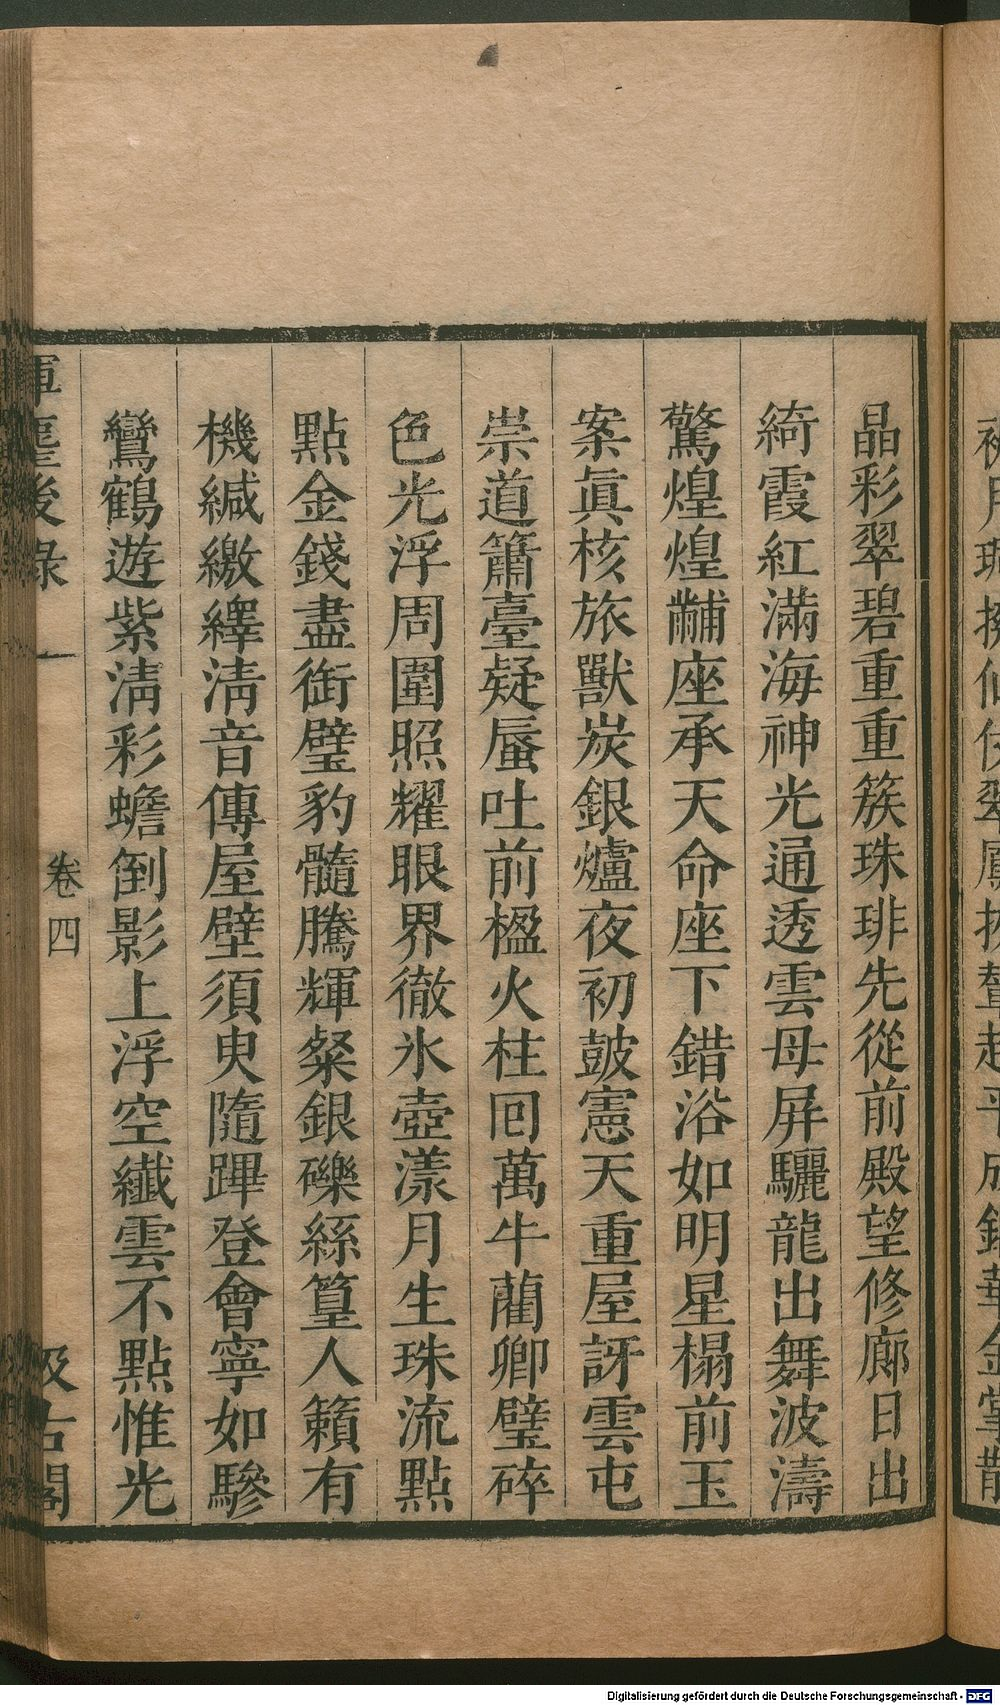 晶彩翠碧重重簇珠琲先從前殿望修廊日出
綺霞紅滿海神光通透雲母屏驪龍出舞波濤
驚煌煌黼座承天命座下錯落如明星榻前玉
案眞核旅獸炭銀爐夜初皷憲天重屋訝雲屯
崇道簫臺疑蜃吐前楹火柱囘萬牛藺卿璧碎
色光浮周圍照耀眼界徹氷壺漾月生珠流點
點金錢盡銜璧豹髓騰輝粲銀礫絲篁人籟有
機緘繳繹淸音傳屋壁須臾隨蹕登會寧如驂
鸞鶴遊紫淸彩蟾倒影上浮空纎雲不點惟光
後錄
卷四
汲古閣
Digitalisierung gefördert durch die Deutsche Forschungsgemeinschaft - DFG